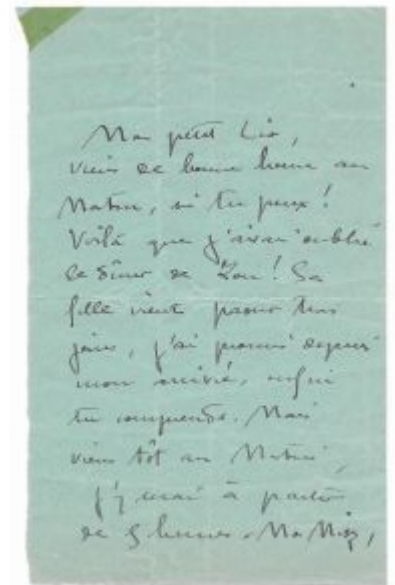 Mon petit Léo,
viens de bonne heure au
Matin, si tu peux !
Voilà que j'avais oublié
le dîner de Zou ! Sa
fille vient pour trois
jours, j'ai promis depuis
mon arrivée, enfin
tu comprends. Mais
viens tôt au Matin,
j'y serai à partir
de 5 heures.